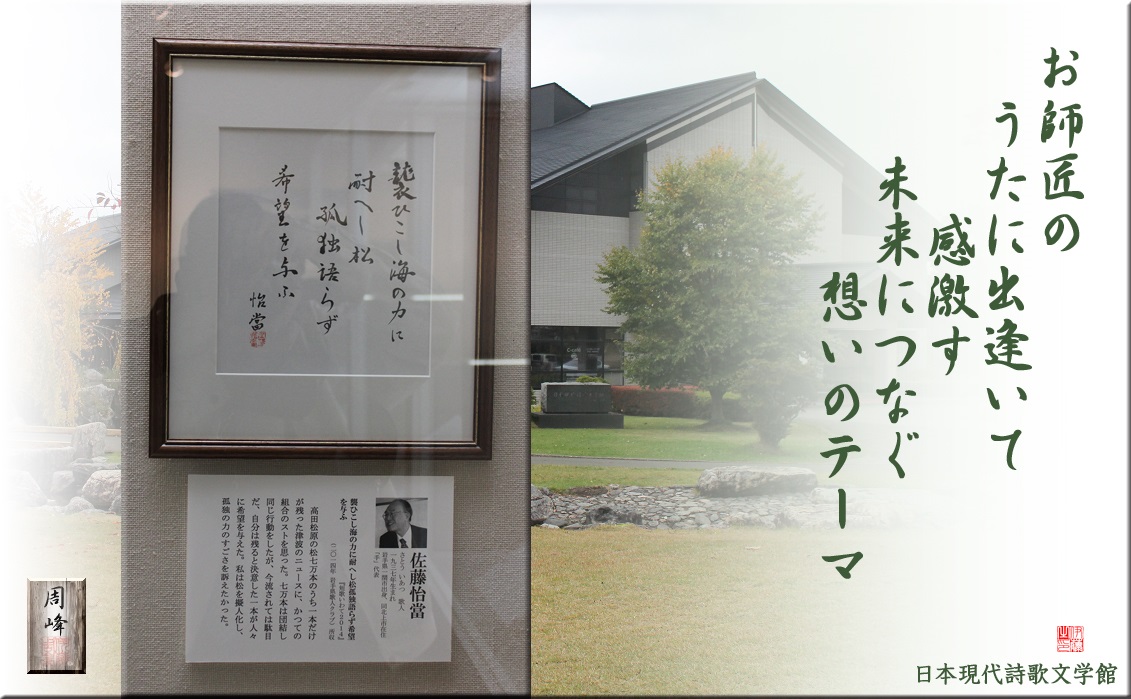 お師匠の
うたに出逢いて
感激す
未来につなぐ
想いのテーマ
襲ひこし海の力に
耐へし松
孤独語らず
希望を与ふ
怡當
佐藤怡當
さとう・いあつ 歌人
一九三七年生まれ
岩手県一関市出身、同北上市在住
「手」代表
襲ひこし海の力に耐へし松孤独語らず希望
を与ふ
『短歌いわて2014』
(二〇一四年 岩手県歌人クラブ)所収
高田松原の松七万本のうち一本だけ
が残った津波のニュースに、かつての
組合のストを思った。七万本は団結し
同じ行動をしたが、今流されては駄目
だ、自分は残ると決意した一本が人々
に希望を与えた。私は松を擬人化し、
孤独の力のすごさを訴えたかった。
周峰
日本現代詩歌文学館